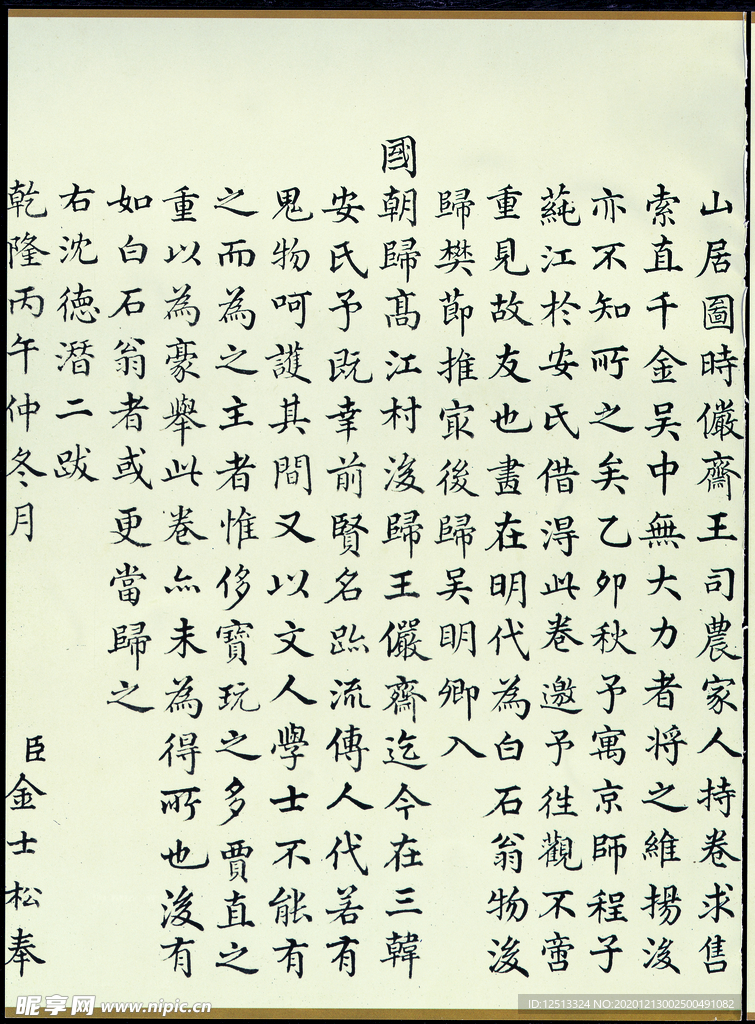 山居圖時儼齋王司農家人持卷求售
索直千金吴中無大力者将之維揚後
亦不知所之矣乙卯秋予寓京師程子
蒓江於安氏借得此卷邀予徃觀不啻
重見故友也畫在明代為白石翁物後
歸樊節推宼後歸吴明卿入
國朝歸髙江村後歸王儼齋迄今在三韓
安氏予既幸前賢名跡流傳人代若有
鬼物呵護其間又以文人學士不能有
之而為之主者惟侈寶玩之多賈直之
重以為豪舉此卷亦未為得所也後有
如白石翁者或更當歸之
右沈德潛二跋
乾隆丙午仲冬月 臣金士松奉
昵享网 www.nipic.cn
ID:12513324 NO:20201213002500491082